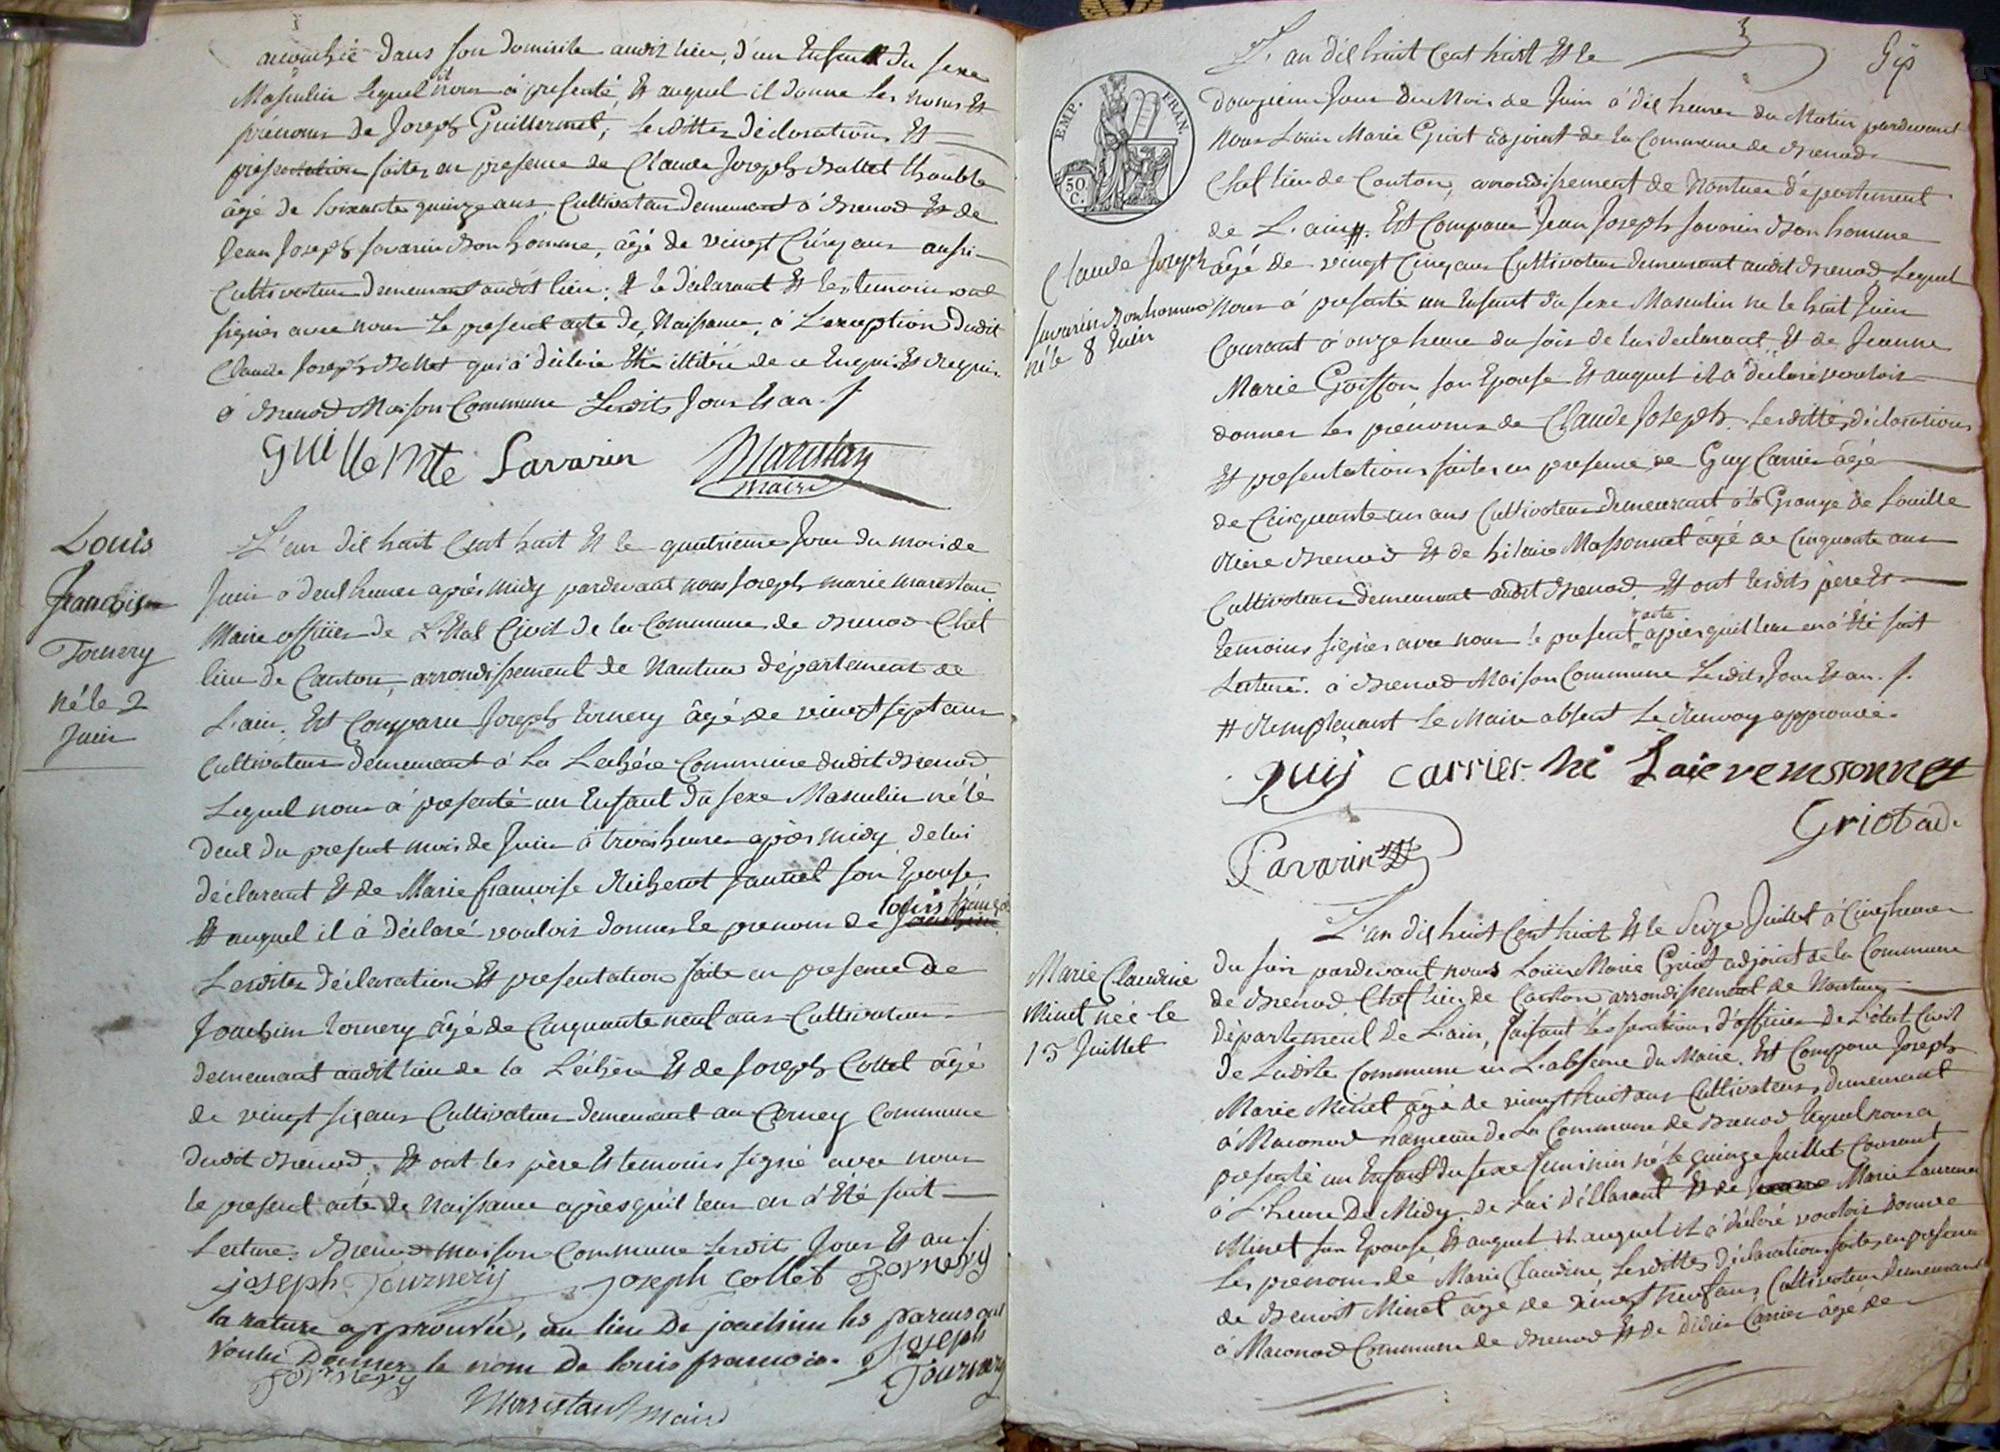 accouchée dans son domicile audit lieu, d'un Enfant du sexe
Masculin lequel il nous à presenté, Et auquel il donne les noms Et
prénoms de Joseph Guillermet, lesdittes déclaration Et
présentation faites en presence de Claude Joseph Ballet
âgé de soixante quinze ans, Cultivateur demeurant à Brenod Et de
Jean Joseph Savarin Bonhomme, âgé de vingt Cinq ans aussi
Cultivateur demeurant audit lieu; Et le déclarant Et les temoins ont
signés avec nous le present acte de Naissance, à l'exception dudit
Claude Joseph Ballet qui à déclaré Etre illitéré de ce Enquis Et Requis.
à Brenod Maison Commune Lesdits Jour Et an./.
guillermte Savarin Marestan
maire
Louis
François
Tornery
né le 2
Juin
L'an dil huit Cent huit Et le quatrieme Jour du mois de
Juin à deux heures après midy pardevant nous Joseph marie marestan
Maire officier de L'Etat Civil de la Commune de Brenod Chef
lieu de Canton, arrondissement de Nantua département de
L'ain. Est Comparu Joseph tornery âgé de vingt sept ans
Cultivateur demeurant à La Lechère Commune dudit Brenod
Lequel nous à presenté un Enfant du sexe Masculin né le
deux du present mois de Juin à trois heures après midy de lui
déclarant Et de Marie françoise Richerot Jaunel son Epouse
louis françois
Et auquel il à déclaré vouloir donner le prenom de
Lesdites déclaration Et presentation faite en presence De
Joachim tornery âgé de Cinquante neuf ans Cultivateur
demeurant audit lieu de la Léchere Et de Joseph Collet âgé
de vingt six ans Cultivateur demeurant au Cerney Commune
dudit Brenod; Et ont les père Et temoins signé avec nous
le present acte de Naissance après qu'il leur en à Eté fait
Lecture. Brenod maison Commune Lesdit Jour Et an./.
joseph Tournery joseph collet tornery
la rature approuvée, au lieu De joachim les parens ont
voulu Donner le nom De louis francois. joseph
tornery Tournery
Marestan maire
3
L'an dil huit Cent huit Et le
EMP. FRAN.
50 C.
douzieme Jour du Mois de Juin à dil heures du Matin pardevant
Nous Loüis Marie Griot adjoint de la Commune de Brenod
Chef lieu de Canton, arrondissement de Nantua département
de L'ain #. Est Comparu Jean Joseph Savarin Bonhomme
Claude Joseph
Savarin Bonhomme
né le 8 Juin
âgé de vingt Cinq ans Cultivateur demeurant audit Brenod Lequel
Nous à presenté un Enfant du sexe Masculin né le huit Juin
Courant à onze heure du soir de lui declarant, Et de Jeanne
Marie Goisson son Epouse Et auquel il à déclaré vouloir
donner les prénoms de Claude Joseph. Lesdittes déclarations
Et presentations faites en presence de Guy Carrier âgé
de Cinquante un ans Cultivateur demeurant à la Grange de Souille
Riere Brenod Et de hilaire Massonnet âgé de Cinquante ans
Cultivateur demeurant audit Brenod. Et ont lesdits père Et
acte
temoins signés avec nous le present après qu'il leur en à Eté fait
Lecture. à Brenod Maison Commune Lesdits Jour Et an./.
# Remplaçant le Maire absent le Renvoy approuvé.
guij carrier hi
Griot ad.
Savarin
Marie Claudine
Minet née le
15 Juillet
L'an dil huit Cent huit Et le Seize Juillet à Cinq heures
du soir pardevant nous Loüis Marie Griot adjoint de la Commune
de Brenod Chef lieu de Canton arrondissement de Nantua
département de L'ain, faisant les fonctions d'officier de L'état Civil
de Ladite Commune en L'absence du Maire. Est Comparu Joseph
Marie Minet âgé de vingt huit ans Cultivateur, demeurant
à Maconod hameau de La Commune de Brenod lequel nous a
presenté un Enfant du sexe feminin né le quinze Juillet Courant
à L'heure De Midy, de Lui déclarant Et de Marie Laurence
Minet son Epouse Et auquel il auquel il à déclaré vouloir donner
Les prenoms de Marie Claudine, Lesdittes déclaration faites en presence
de Benoit Minet âgé de vingt neuf ans Cultivateur demeurant
à Maconod Commune de Brenod Et de Didier Carrier âgé de